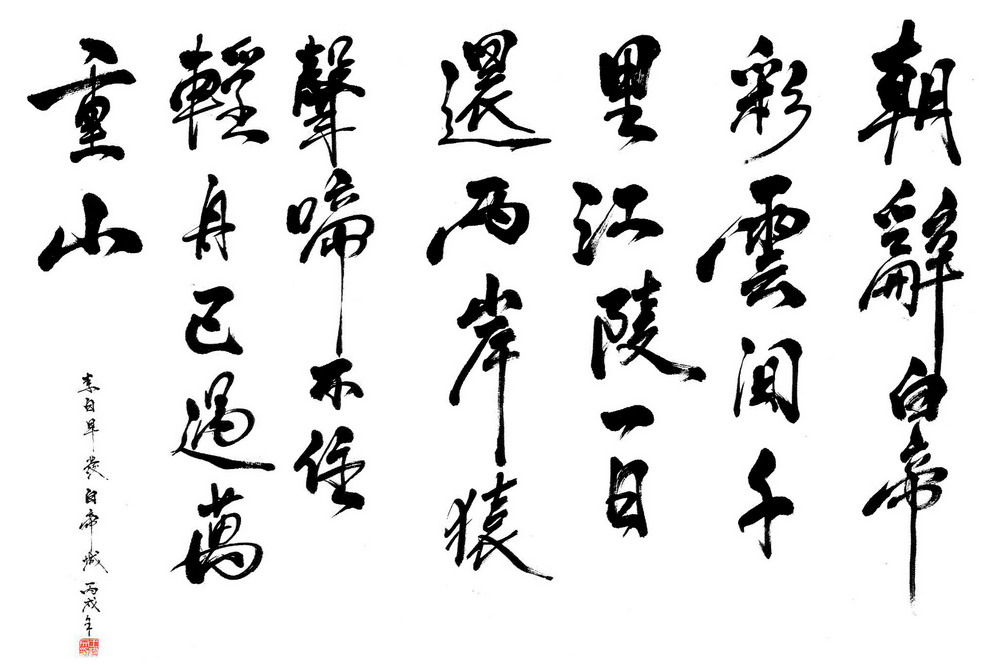 朝辭白帝
彩雲間千
里江陵一日
還兩岸猿
聲啼不住
輕舟已過萬
重山
李白早發白帝城 丙戌年